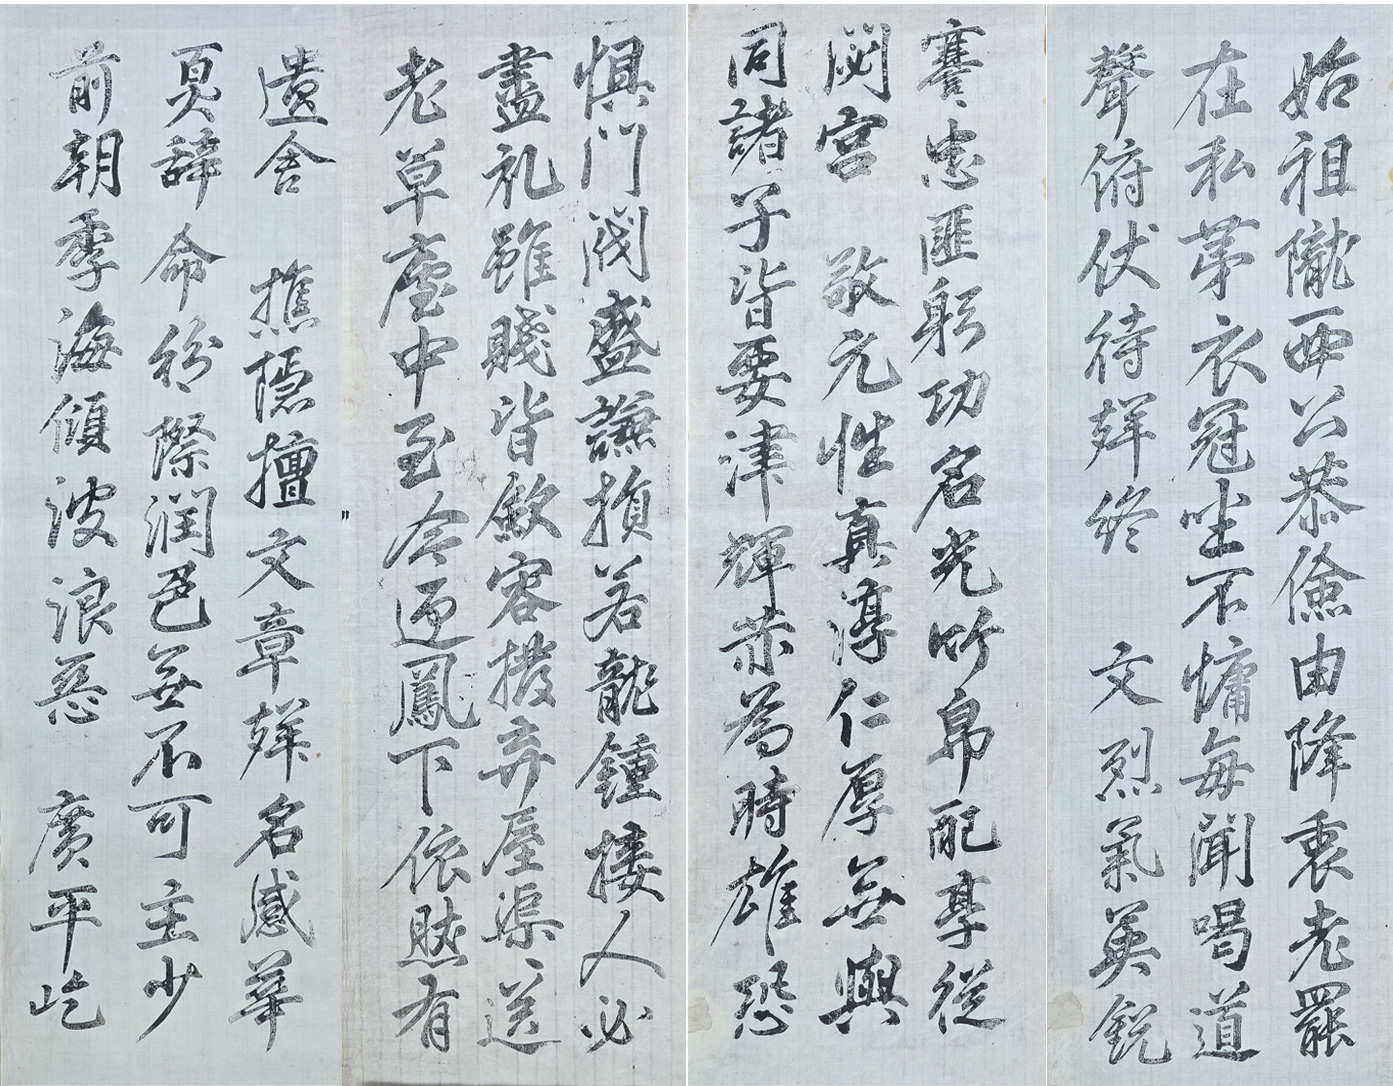 始祖隴西公恭儉由降衷老罷
在私第衣冠坐不慵每聞喝道
聲俯伏待終 文烈氣英銳
謇〻忠匪躬功名光竹帛配享從
閟宮 敬元性真淳仁厚無與
同諸子皆要津輝赫為時雄恐
惧門閥盛謙損若龍鍾接人必
盡礼雖賤皆斂容撥弃屋渠〻送
老草廬中至今迎鳳下依然有
遺舍 樵隱擅文章名感華
夏辭命紛際潤色無不可主少
前朝季海傾波浪惡 廣平屹